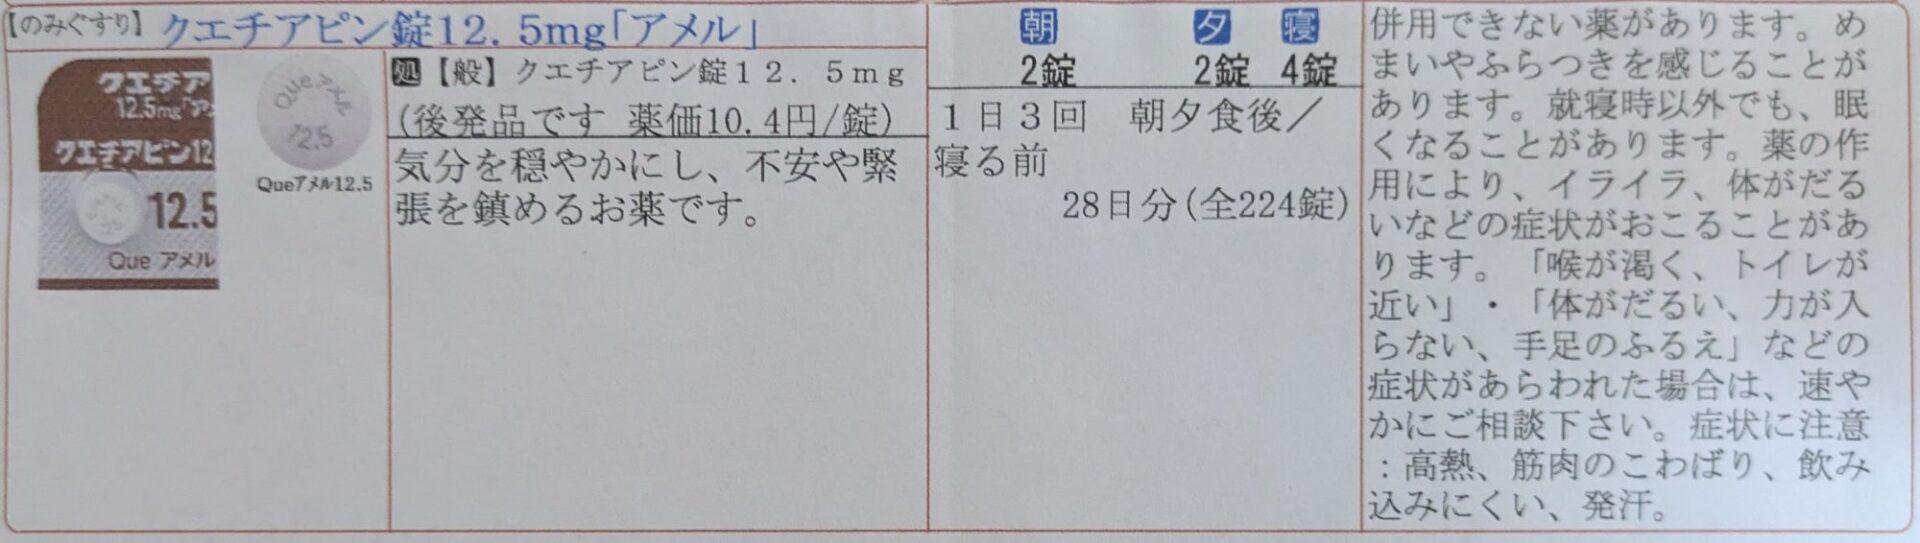 【のみぐすり】 クエチアピン錠12.5mg｢アメル｣
クエチア
12.5mg「ア
クエチアピン12
12.5
Que アメル
Que アメル
12.5
Queアメル12.5
処【般】クエチアピン錠１２．５ｍｇ
(後発品です 薬価10.4円/錠)
気分を穏やかにし、不安や緊
張を鎮めるお薬です。
朝 夕 寝
2錠 2錠 4錠
１日３回　朝夕食後／
寝る前
28日分(全224錠)
併用できない薬があります。め
まいやふらつきを感じることが
あります。就寝時以外でも、眠
くなることがあります。薬の作
用により、イライラ、体がだる
いなどの症状がおこることがあ
ります。「喉が渇く、トイレが
近い」・「体がだるい、力が入
らない、手足のふるえ」などの
症状があらわれた場合は、速や
かにご相談下さい。症状に注意
：高熱、筋肉のこわばり、飲み
込みにくい、発汗。